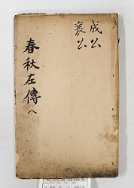 成公
襄公
春秋左傳 八